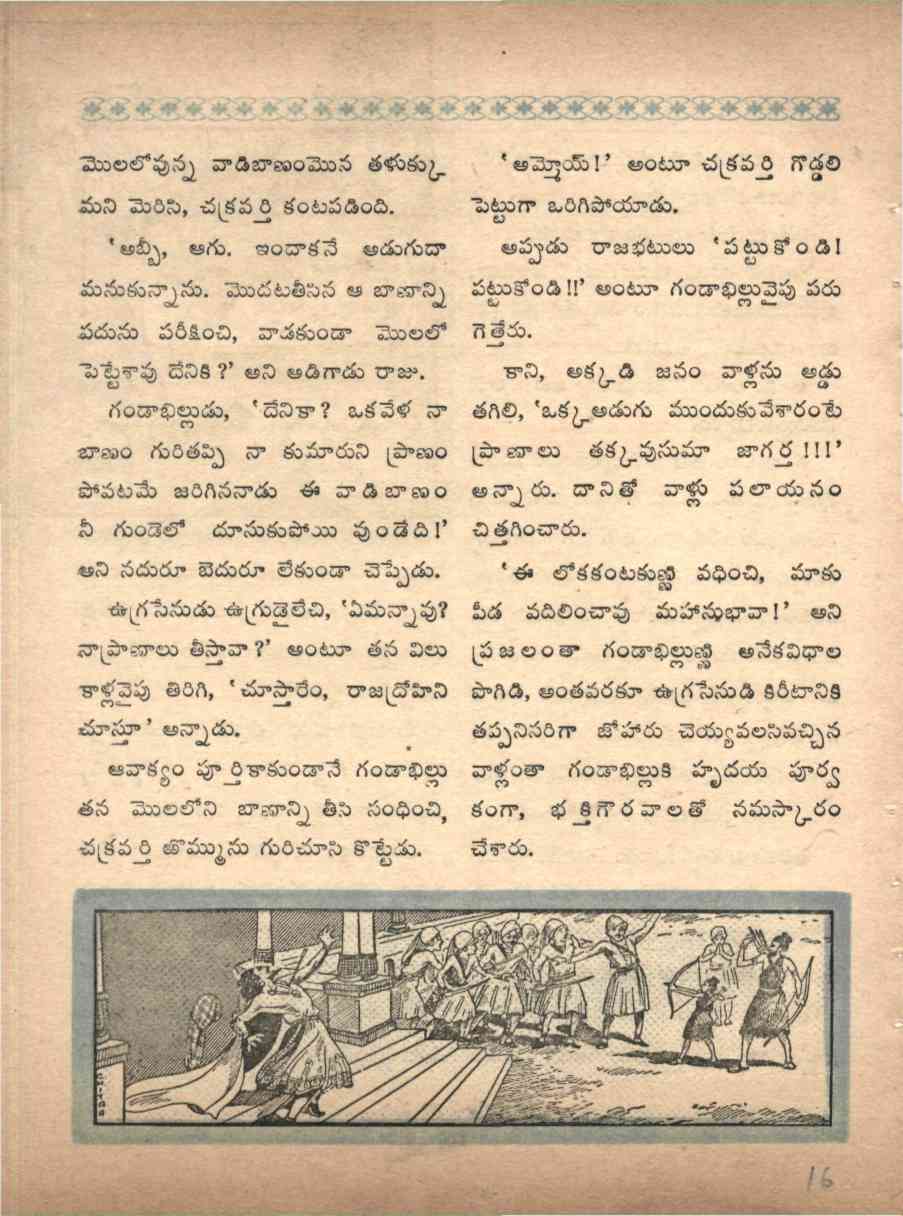 మొలలోవున్న వాడిబాణంమొన తళుక్కు
మని మెరిసి, చక్రవర్తి కంటపడింది.
‘అబ్బీ, ఆగు. ఇందాకనే అడుగుదా
మనుకున్నాను. మొదటతీసిన ఆ బాణాన్ని
పదును పరీక్షించి, వాడకుండా మొలలో
పెట్టేశావు దేనికి?’ అని అడిగాడు రాజు.
గండాభిల్లుడు, ‘దేనికా? ఒకవేళ నా
బాణం గురితప్పి నా కుమారుని ప్రాణం
పోవటమే జరిగిననాడు ఈ వాడిబాణం
నీ గుండెలో దూసుకుపోయి వుండేది!’
అని నదురూ బెదురూ లేకుండా చెప్పేడు.
ఉగ్రసేనుడు ఉగ్రుడైలేచి, ‘ఏమన్నావు?
నాప్రాణాలు తీస్తావా?’ అంటూ తన విలు
కాళ్లవైపు తిరిగి, ‘చూస్తారేం, రాజద్రోహిని
చూస్తూ’ అన్నాడు.
ఆవాక్యం పూర్తికాకుండానే గండాభిల్లు
తన మొలలోని బాణాన్ని తీసి సంధించి,
చక్రవర్తి ఱొమ్మును గురిచూసి కొట్టేడు.
‘అమ్మోయ్!’ అంటూ చక్రవర్తి గొడ్డలి
పెట్టుగా ఒరిగిపోయాడు.
అప్పుడు రాజభటులు ‘పట్టుకోండి!
పట్టుకోండి!!’ అంటూ గండాభిల్లువైపు పరు
గెత్తేరు.
కాని, అక్కడి జనం వాళ్లను అడ్డు
తగిలి, ‘ఒక్కఅడుగు ముందుకువేశారంటే
ప్రాణాలు తక్కవుసుమా జాగర్త!!!’
అన్నారు. దానితో వాళ్లు పలాయనం
చిత్తగించారు.
‘ఈ లోకకంటకుణ్ణి వధించి, మాకు
పీడ వదిలించావు మహానుభావా!’ అని
ప్రజలంతా గండాభిల్లుణ్ణి అనేకవిధాల
పొగిడి, అంతవరకూ ఉగ్రసేనుడి కిరీటానికి
తప్పనిసరిగా జోహారు చెయ్యవలసివచ్చిన
వాళ్లంతా గండాభిల్లుకి హృదయ పూర్వ
కంగా, భక్తిగౌరవాలతో నమస్కారం
చేశారు.
16